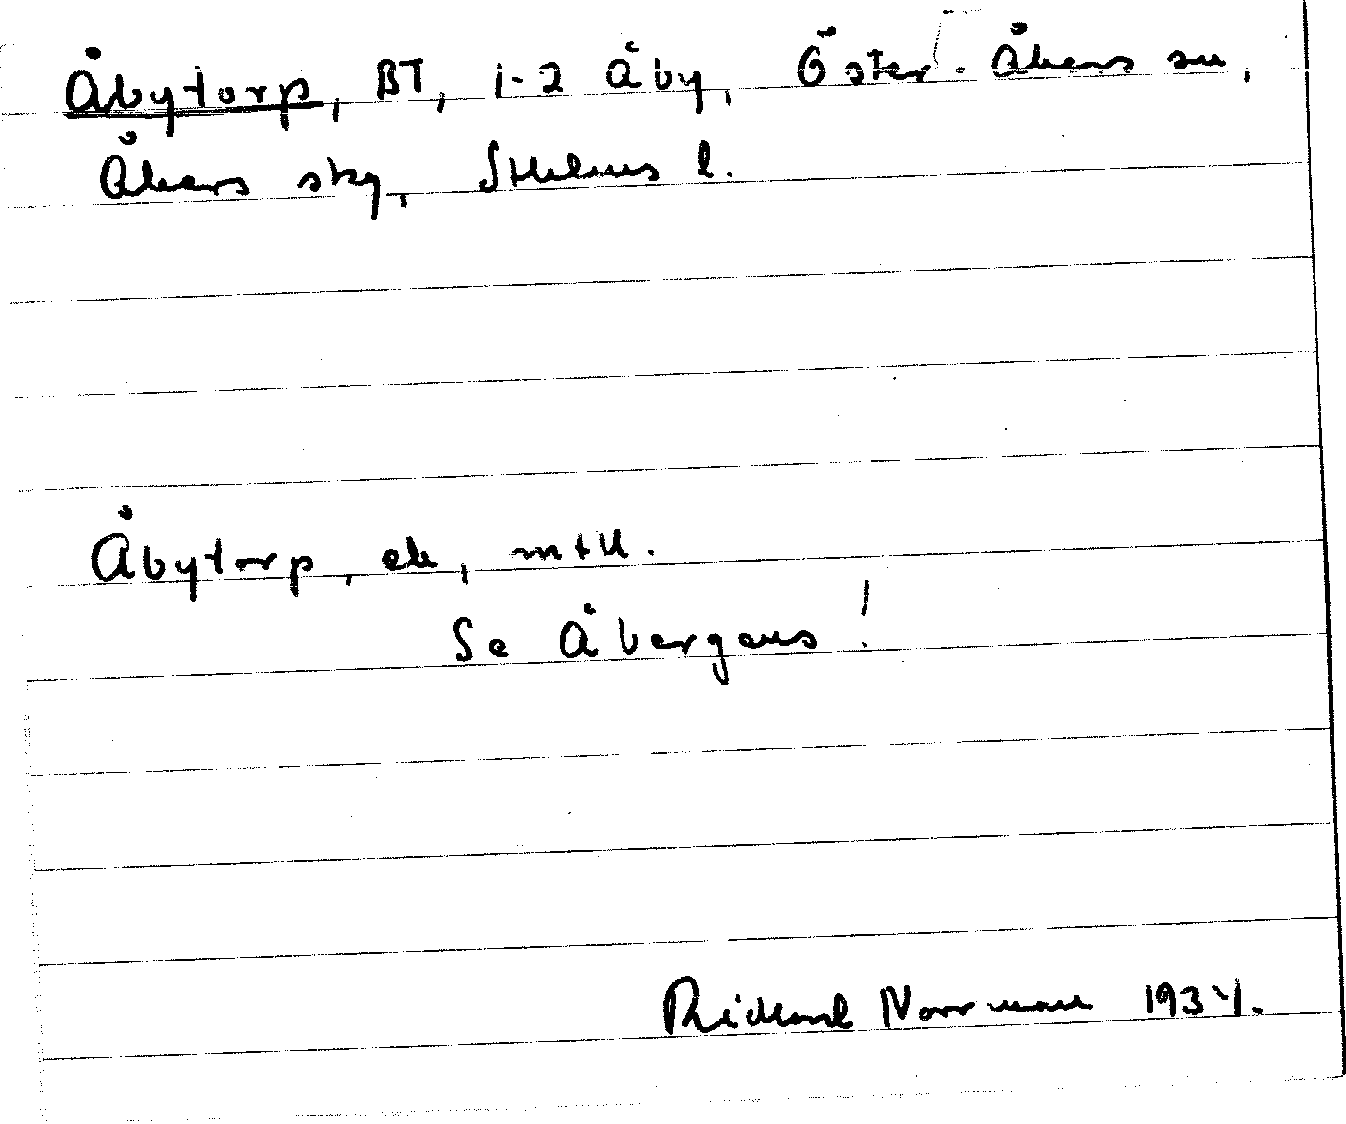 Åbytorp, BT, 1-2 Åby, Öster-Åkers sn,
Åkers skg, Sthlms l.
Åbytorp, ek, mtU.
Se Åbergens!
Rickard Norrman 1934.